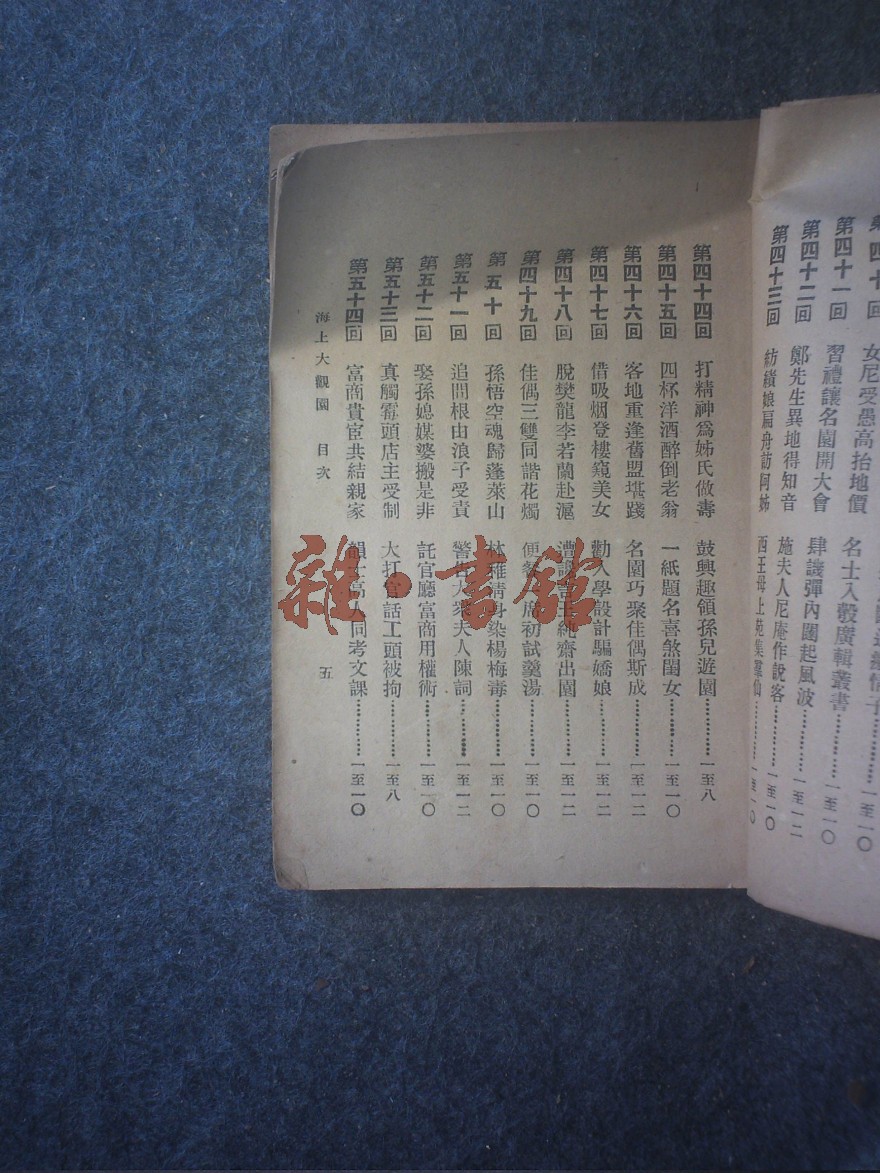 第四十回 女尼受愚高抬地價
第四十一回 習禮讓名園開大會 名士入彀廣輯叢書………一至一〇
第四十二回 鄭先生異地得知音 肆譏彈內閧起風波………一至一二
第四十三回 紡績娘扁舟訪阿姊 施夫人尼庵作說客………一至一〇
西王母上苑集羣仙………一至一〇
第四十四回 打精神爲姊氏做壽 鼓興趣領孫兒遊園………一至八
第四十五回 四杯洋酒醉倒老翁 一紙題名喜煞閨女………一至一〇
第四十六回 客地重逢舊盟堪踐 名園巧聚佳偶斯成………一至一二
第四十七回 借吸烟登樓窺美女 勸入學設計騙嬌娘………一至一二
第四十八回 脫樊龍李若蘭赴滬 遭 純齋出園………一至一二
第四十九回 佳偶三雙同諧花燭 便 席初試羹湯………一至一〇
第五十回 孫悟空魂歸蓬萊山 林雅清身染楊梅毒………一至一〇
第五十一回 追問根由浪子受責 警告大衆夫人陳詞………一至一二
第五十二回 娶孫媳媒婆搬是非 託官廳富商用權術………一至一〇
第五十三回 真觸霉頭店主受制 大打官話工頭被拘………一至八
第五十四回 富商貴宦共結親家 韻士高人同考文課………一至一〇
海上大觀園 目次 五
雜·書館